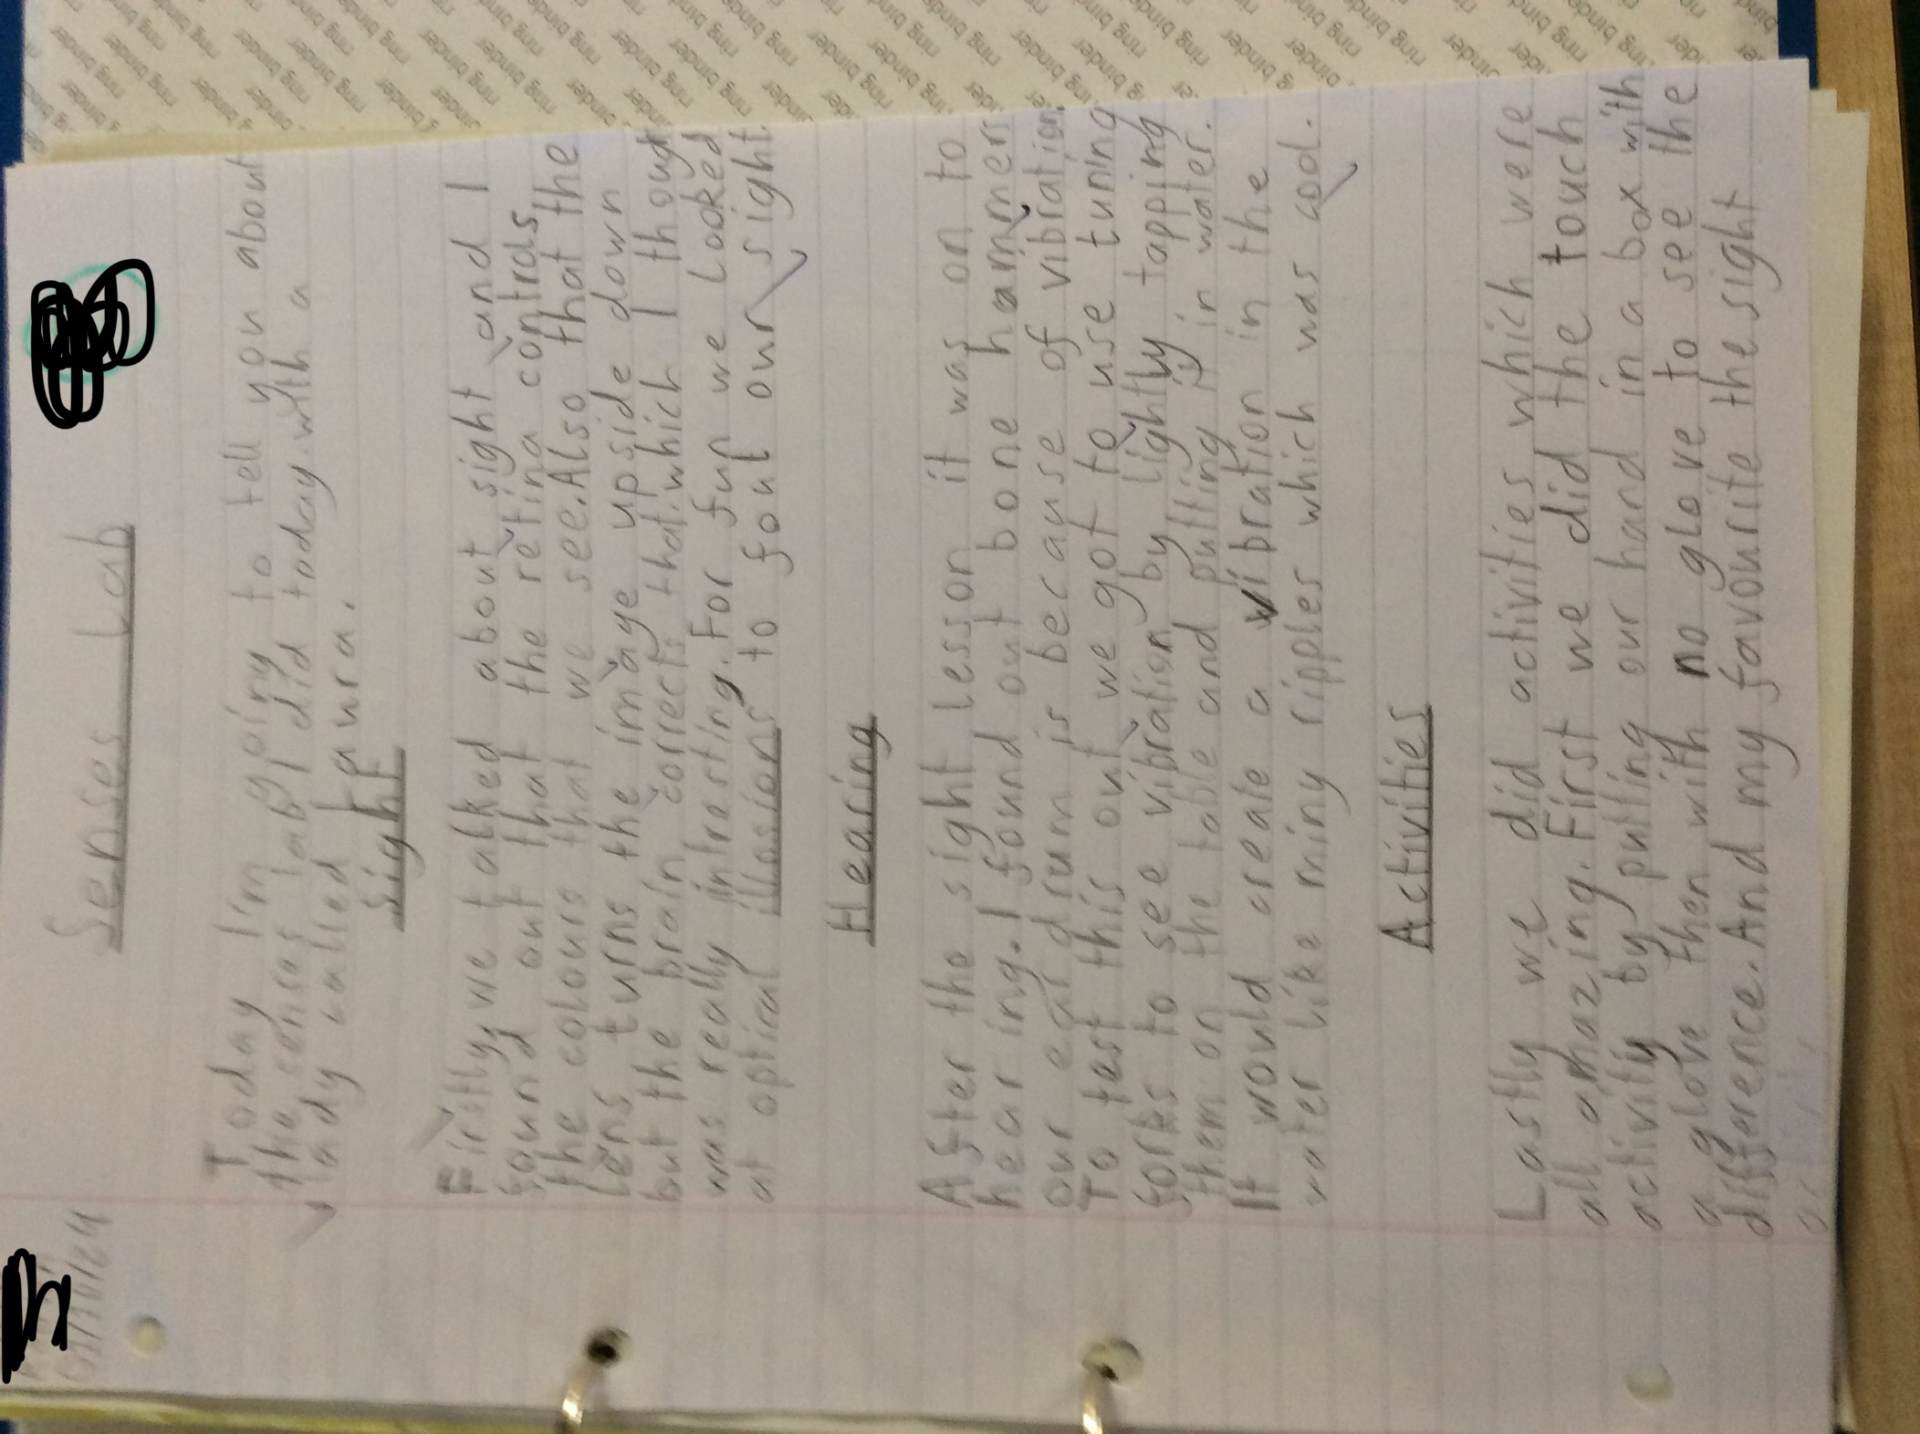 Senses Lab
Today I'm going to tell you about
the senses lab I did today with a
lady called Lawra.
Sight
Firstly, we talked about sight and I
found out that the retina controls
the colours that we see. Also that the
lens turns the image upside down
but the brain corrects that. which I though
was really intresting. For fun we Looked
at optical illosions to fout our sight.
Hearing
After the sight lesson it was on to
hearing. I found out bone hammers
our ear drum is because of vibration.
To test this out we got to use tuning
forks to see vibration by lightly tapping
them on the table and putting it in water.
It would create a vibration in the
water like miny ripples which was cool.
Activities
Lastly we did activities which were
all amazing. First we did the touch
activity by putting our hand in a box with
a glove then with no glove to see the
difference. And my favourite the sight
ring binder